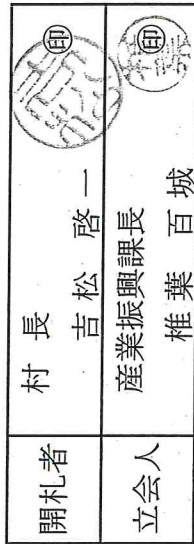 開札者
村長
吉松 啓一 ㊞
立会人
産業振興課長
椎葉 百城 ㊞